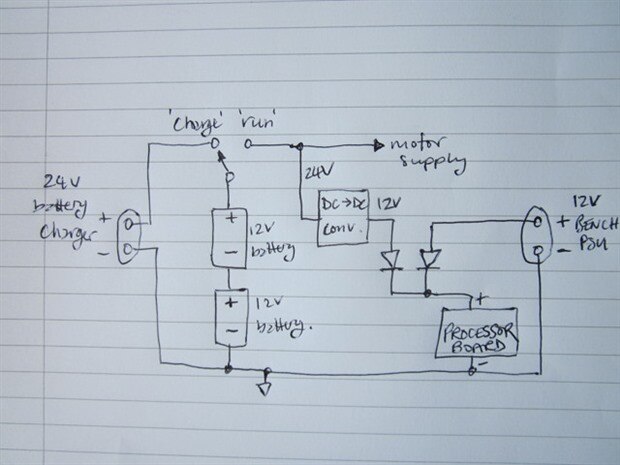 'Charge' 'run'
motor
supply
24V
battery
Charger
+
-
24V
DC→DC
conv.
12V
12V
BENCH
PSU
+
-
+
-
12V
battery
+
-
12V
battery.
+
PROCESSOR
BOARD
-